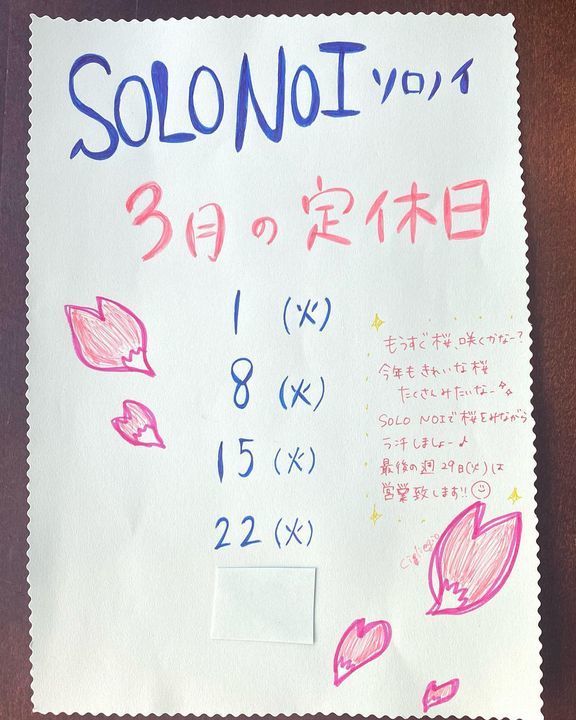 SOLO NOI ソロノイ
3月の定休日
1 (火)
8 (火)
15 (火)
22 (火)
もうすぐ桜、咲くかなー?
今年もきれいな桜
たくさんみたいなー
SOLO NOIで桜をみながら
ランチしましょー♪
最後の週 29日(火)は
営業致します!!